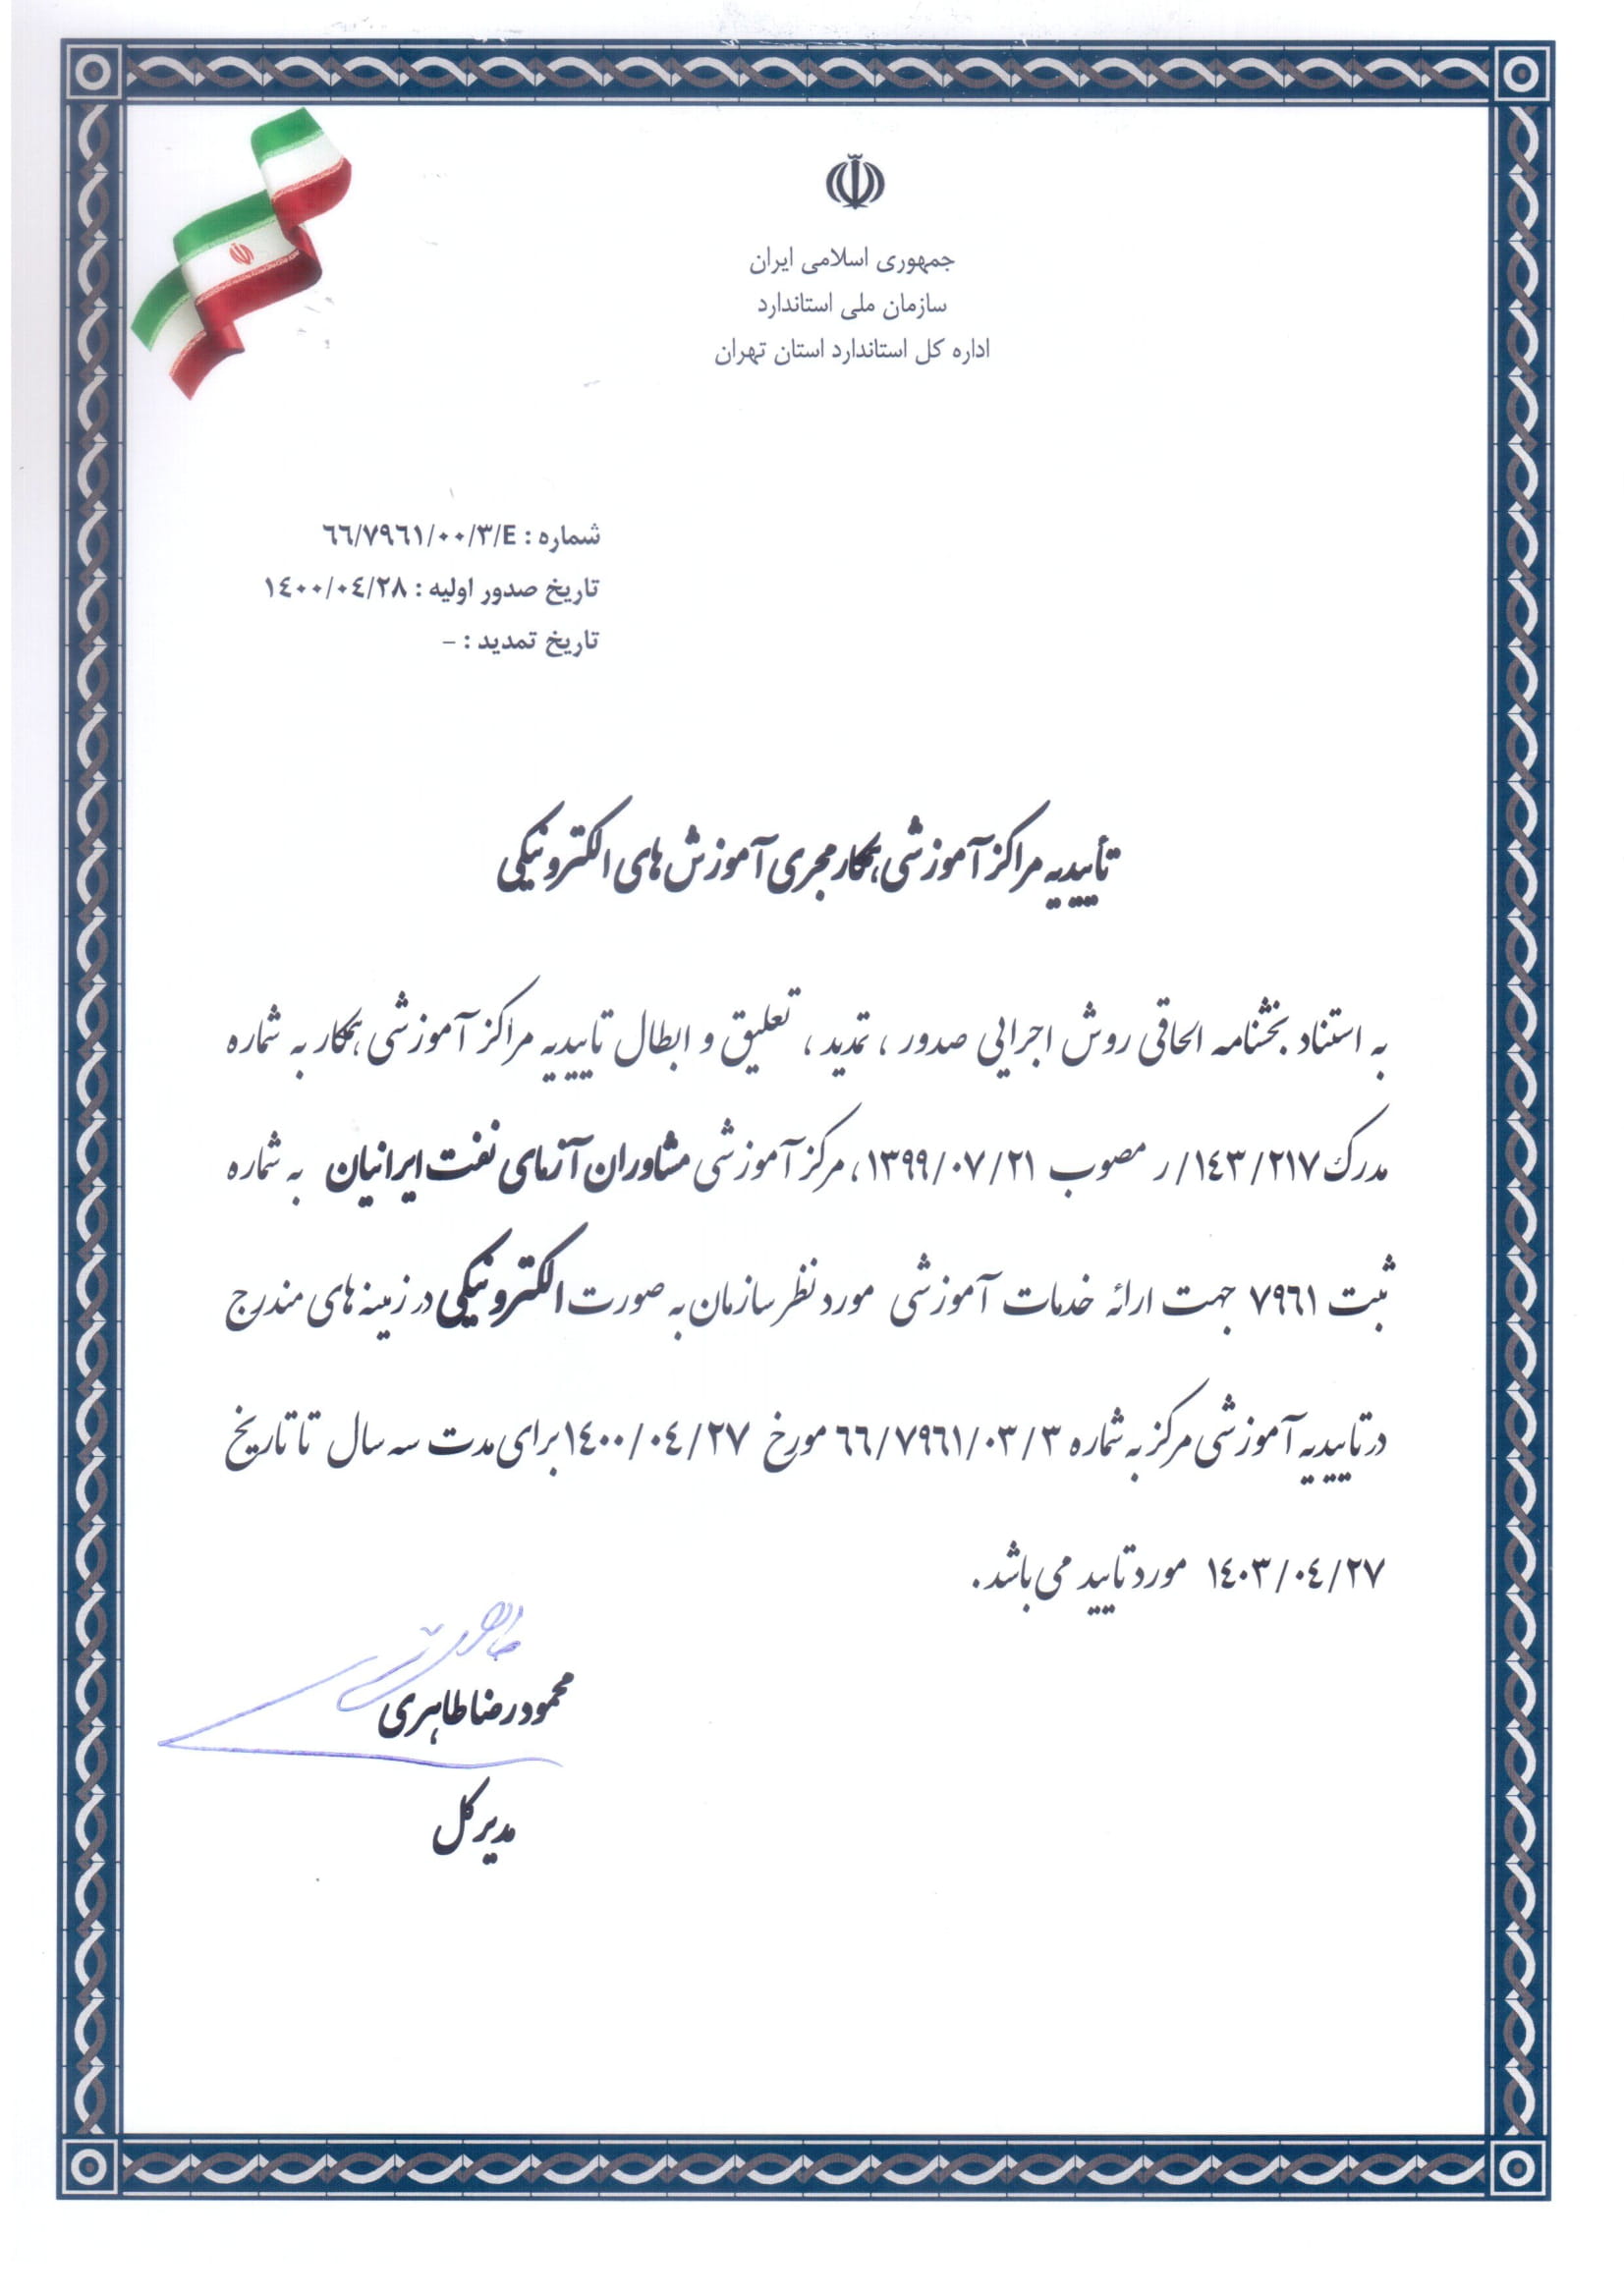 جمهوری اسلامی ایران
سازمان ملی استاندارد
اداره کل استاندارد استان تهران
شماره : ٦٦/٧٩٦١/٠٠/٣/E
تاریخ صدور اولیه : ١٤٠٠/٠٤/٢٨
تاریخ تمدید : –
تأییدیه مراکز آموزشی همکار مجری آموزش های الکترونیکی
به استناد بخشنامه الحاقی روش اجرایی صدور ، تمدید ، تعلیق و ابطال تاییدیه مراکز آموزشی همکار به شماره
مدرک ١٤٣/٢١٧/ر مصوب ١٣٩٩/٠٧/٢١، مرکز آموزشی مشاوران آزمای نفت ایرانیان به شماره
ثبت ٧٩٦١ جهت ارائه خدمات آموزشی مورد نظر سازمان به صورت الکترونیکی در زمینه های مندرج
در تاییدیه آموزشی مرکز به شماره ٦٦/٧٩٦١/٠٣/٣ مورخ ١٤٠٠/٠٤/٢٧ برای مدت سه سال تا تاریخ
١٤٠٣/٠٤/٢٧ مورد تایید می باشد.
محمودرضا طاهری
مدیر کل